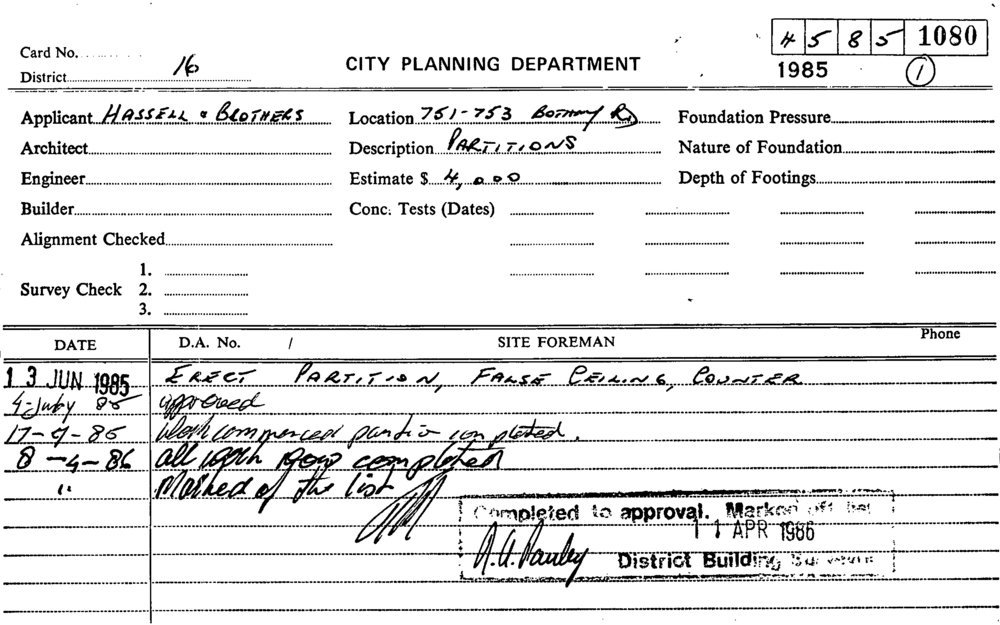 4 5 8 5 1080
Card No.
District 16
CITY PLANNING DEPARTMENT
1985 1
Applicant HASSELL & BROTHERS
Location 751-753 BOTANY RD
Foundation Pressure
Architect
Description PARTITIONS
Nature of Foundation
Engineer
Estimate $ 4,000
Depth of Footings
Builder
Conc. Tests (Dates)
Alignment Checked
Survey Check
1.
2.
3.
DATE D.A. No. / SITE FOREMAN Phone
13 JUN 1985 ERECT PARTITION, FALSE CEILING, COUNTER
4-July 85 approved
17-9-85 Work commenced completed.
8-4-86 all work now completed
" Marked of the list
Completed to approval. Marked off list
11 APR 1986
District Building Surveyor